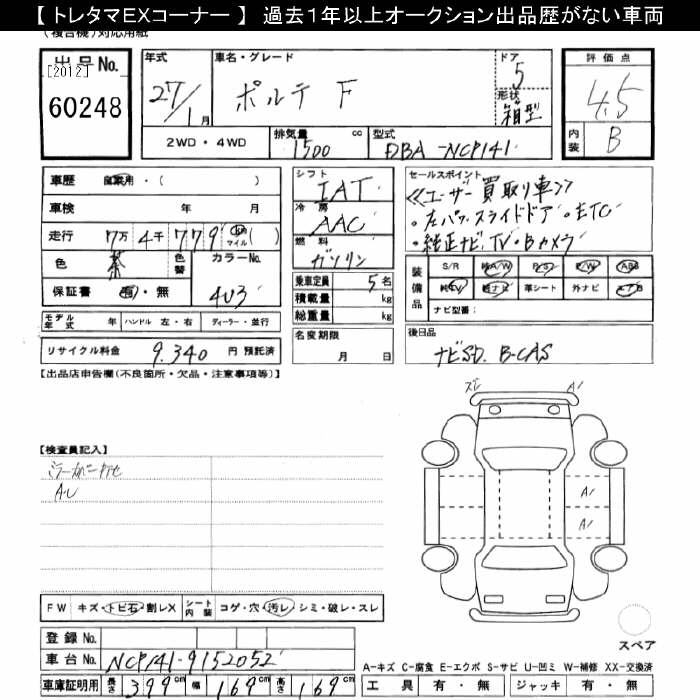 【 トレタマEXコーナー 】 過去1年以上オークション出品歴がない車両
(複合機)対応用紙
出品No. [2012] 60248
年式 27/1月
車名・グレード ポルテ F
ドア 5
形状 箱型
評価点 4.5
内装 B
2WD・4WD
排気量 1500 cc
型式 DBA-NCP141
車歴 自家用・( )
車検 年 月
走行 7万 4千 779 km マイル ( )
色 茶 色替 カラーNo. 4U3
保証書 有・無
モデル年式 年 ハンドル 左・右 ディーラー・並行
リサイクル料金 9,340 円 預託済
シフト IAT
冷房 AAC
燃料 ガソリン
乗車定員 5名
積載量 kg
総重量 kg
名変期限 月 日
セールスポイント
≪ユーザー買取り車≫
・左パワースライドドア・ETC
・純正ナビ・TV・Bカメラ
装備品 S/R 純A/W P/S P/W ABS
純TV 純ナビ 革シート 外ナビ エアB
ナビ型番:
後日品 ナビSD. B-CAS
【出品店申告欄(不良箇所・欠品・注意事項等)】
【検査員記入】
AU
A1
A1
A1
FW キズ・トビ石・割レX シート内装 コゲ・穴・汚レ・シミ・破レ・スレ
登録No.
車台No. NCP141-9152052
車庫証明用 長さ 399cm 幅 169cm 高さ 169cm
スペア
A-キズ C-腐食 E-エクボ S-サビ U-凹ミ W-補修 XX-交換済
工具 有・無 ジャッキ 有・無